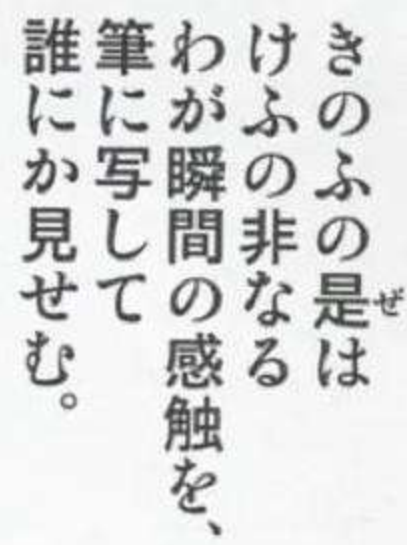 きのふの是は
けふの非なる
わが瞬間の感触を、
筆に写して
誰にか見せむ。